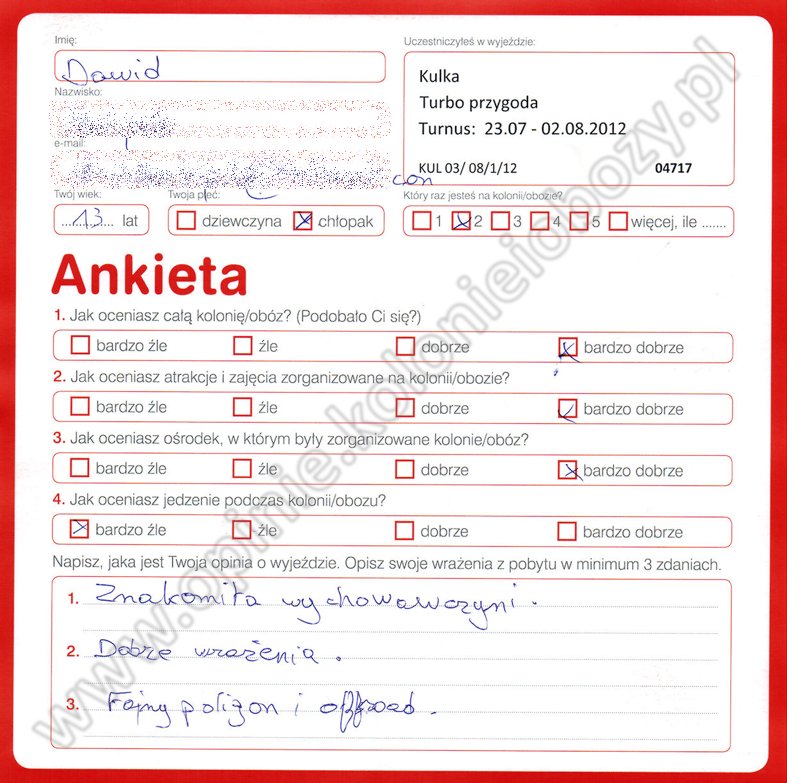 Imię:
Uczestniczyłeś w wyjeździe:
Dawid
Kulka
Turbo przygoda
Turnus: 23.07 - 02.08.2012
KUL 03/ 08/1/12 04717
Nazwisko:
e-mail:
con
Twój wiek:
Twoja płeć:
Który raz jesteś na kolonii/obozie?
13 lat
dziewczyna chłopak
1 2 3 4 5 więcej, ile .......
Ankieta
1. Jak oceniasz całą kolonię/obóz? (Podobało Ci się?)
bardzo źle źle dobrze bardzo dobrze
2. Jak oceniasz atrakcje i zajęcia zorganizowane na kolonii/obozie?
bardzo źle źle dobrze bardzo dobrze
3. Jak oceniasz ośrodek, w którym były zorganizowane kolonie/obóz?
bardzo źle źle dobrze bardzo dobrze
4. Jak oceniasz jedzenie podczas kolonii/obozu?
bardzo źle źle dobrze bardzo dobrze
Napisz, jaka jest Twoja opinia o wyjeździe. Opisz swoje wrażenia z pobytu w minimum 3 zdaniach.
1. Znakomita wychowawczyni.
2. Dobre wrażenia.
3. Fajny poligon i offroad.
www.opinie.kolonieiobozy.pl